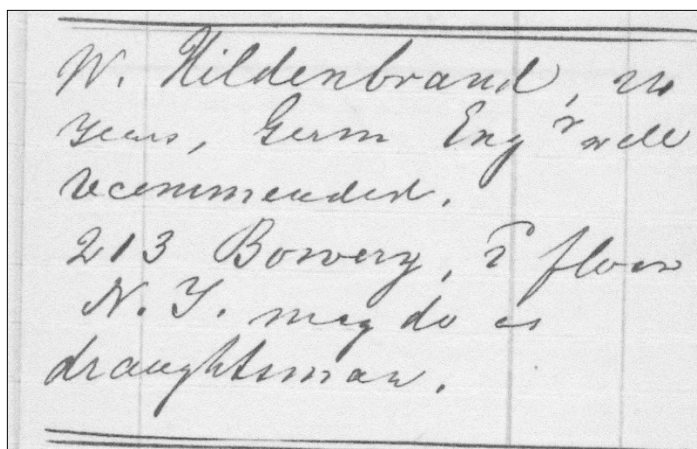 W. Hildenbrand, 24
years, Germ Eng^r well
recommended.
213 Bowery, floor
N. Y. may do as
draughtsman.